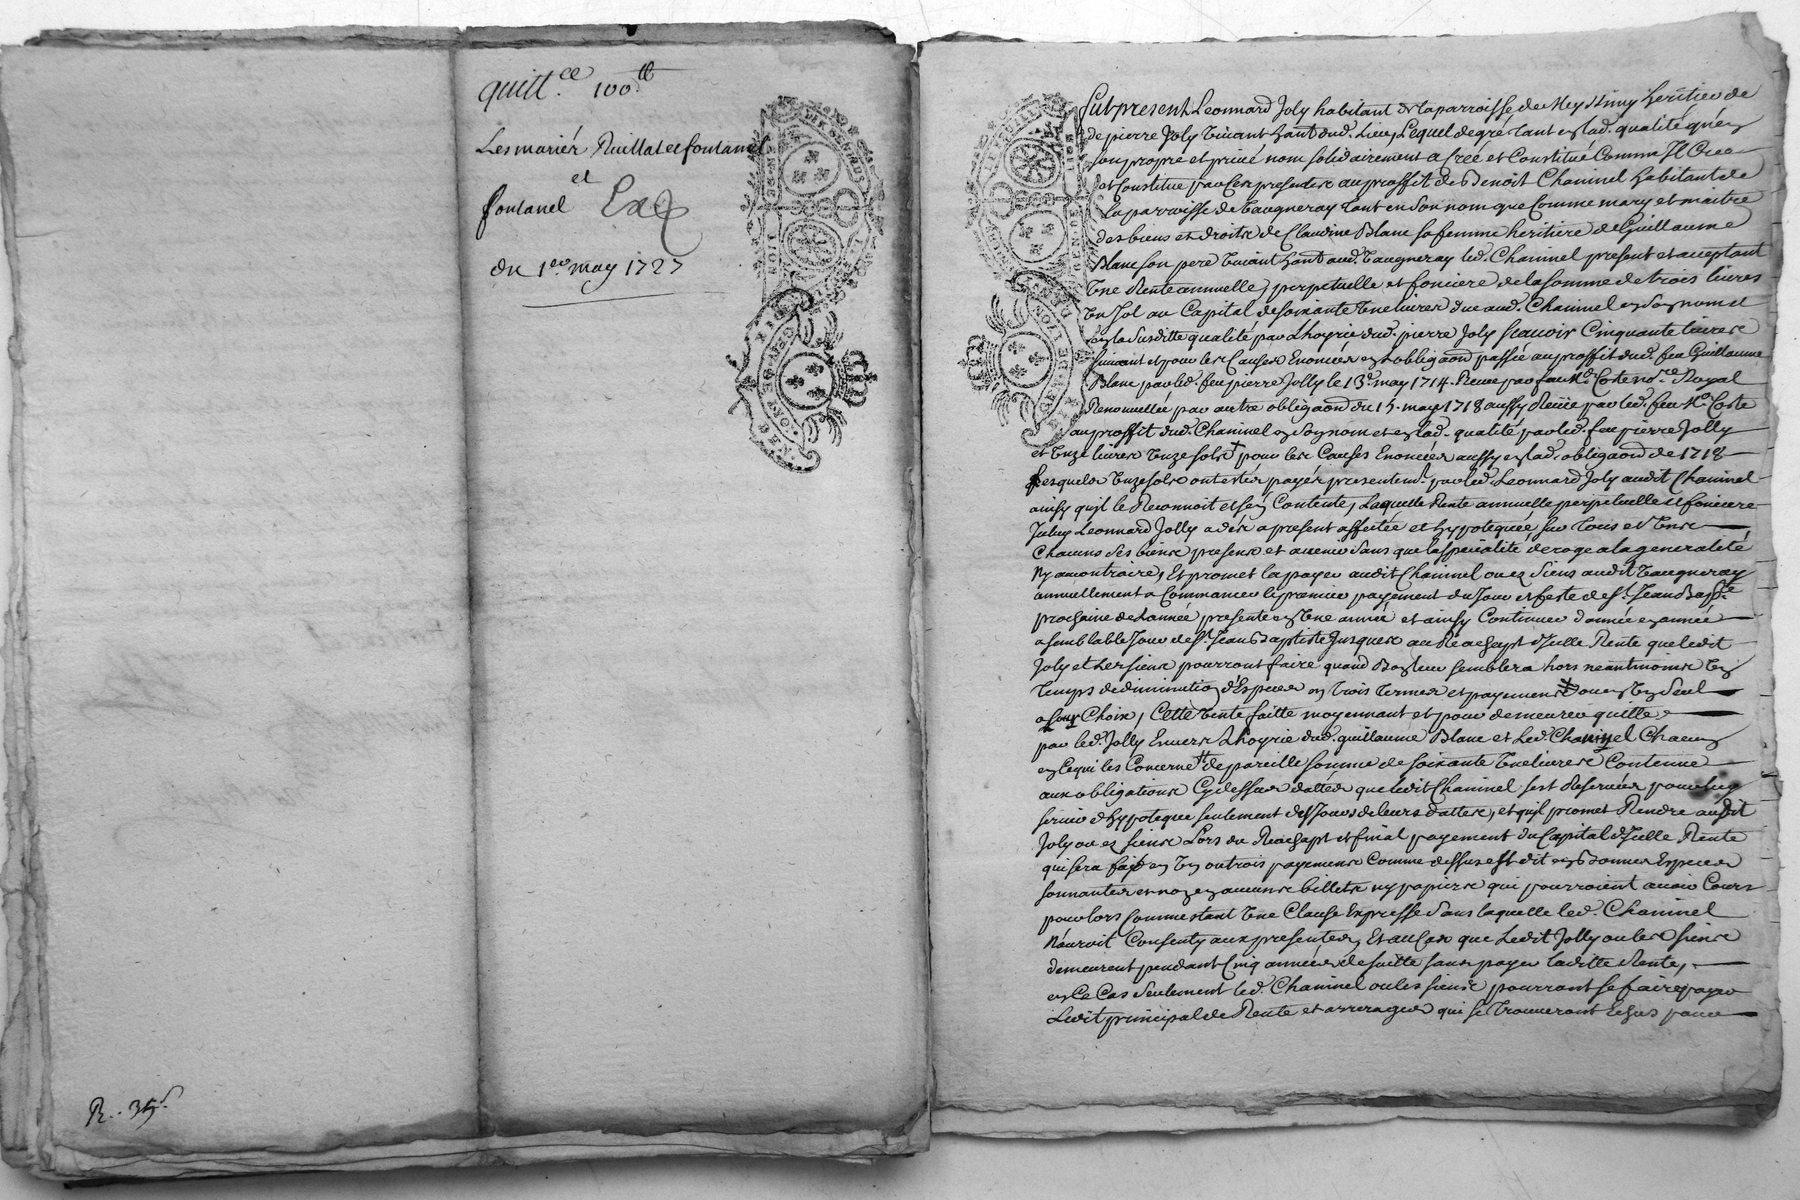 quitt.ce 100.tt
Les mariér Ruillat et fontanel
et
fontanel
du 1.er may 1727
R. 35.s
GEN. DE LYON
Fut present Leonnard Joly habitant de la parroisse de Meyssimy heritier de
de pierre Joly vivant habt. dud. Lieu, Lequel de gré tant en lad. qualité qu'en
son propre et privé nom solidairement a créé et Constitué Comme Il Crée
et Constitue par Ces presentes au proffit de Benoit Chaninel habitant de
la parroisse de Vaugneray tant en son nom que Comme mary et maitre
des biens et droits de Claudine Blanc sa femme heritiere de Guillaume
Blanc son pere vivant habt. aud. Vaugneray led. Chaninel present et acceptant
Une Rente annuelle, perpetuelle et fonciere de la somme de trois livres
Un sol au Capital de soixante Une livres due aud. Chaninel en son nom et
en la susditte qualité par Lhoyrie dud. pierre Joly scavoir Cinquante livres
suivant et pour les Causes Enoncées en obligaon passée au proffit dud. feu Guillaume
Blanc par led. feu pierre Jolly le 13.e may 1714. Reçue par feu M.e Coste no.re Royal
Renouvellée par autre obligaon du 15. may 1718 aussy Reçue par led. feu M.e Coste
au proffit dud. Chaninel en son nom et en lad. qualité par led. feu pierre Jolly
et Unze livres Unze sols pour les Causes Enoncées aussy en lad. obligaon de 1718
Lesquels Unze sols ont estés payés presentemt. par led. Leonnard Joly audit Chaninel
ainsy qu'il le Reconnoit et s'en Contente, Laquelle Rente annuelle perpetuelle et fonciere
Iceluy Leonnard Jolly a dès a present affectée et hypotequée sur Tous et Uns
Chacuns ses biens presens et avenir sans que la specialité deroge a la generalité
Ny au contraire, Et promet la payer audit Chaninel ou ez siens audit Vaugneray
annuellement a Commancer le premier payement du Jour et feste de St. Jean Bapt.e
prochaine de Lannée presente en Une année et ainsy Continuer d'année en année
a semblable Jour de St. Jean Baptiste Jusques au Reachapt d'Icelle Rente que ledit
Joly et Les siens pourront faire quand Bon leur semblera hors neantmoins Un
Temps de diminution d'Especes en Trois Termes et payemens ou en Un seul
a leur Choix, Cette Vente faitte moyennant et pour demeurer quitte
par led. Jolly Envers Lhoyrie dud. guillaume Blanc et Led. Chaninel Chacun
en Ce qui les Concerne de pareille somme de soixante Une livres Contenue
aux obligations Cy dessus dattées que ledit Chaninel s'est Reservées pour luy
servir d'hypoteque seulement des Jours de leurs dattes, et qu'il promet Rendre audit
Joly ou ez siens Lors du Reachapt et final payement du Capital d'Icelle Rente
qui sera fait en Un ou trois payemens Comme dessus est dit en bonnes Especes
sonnantes et non en aucuns billets ny papiers qui pourroient avoir Cours
pour lors Comme etant Une Clause Expresse sans laquelle led. Chaninel
N'auroit Consenty aux presentes, Et au Cas que Ledit Jolly ou les siens
demeurent pendant Cinq années de suitte sans payer laditte Rente,
en Ce Cas seulement led. Chaninel ou les siens pourront se faire payer
Ledit principal de Rente et arrerages qui se Trouveront Echus pour